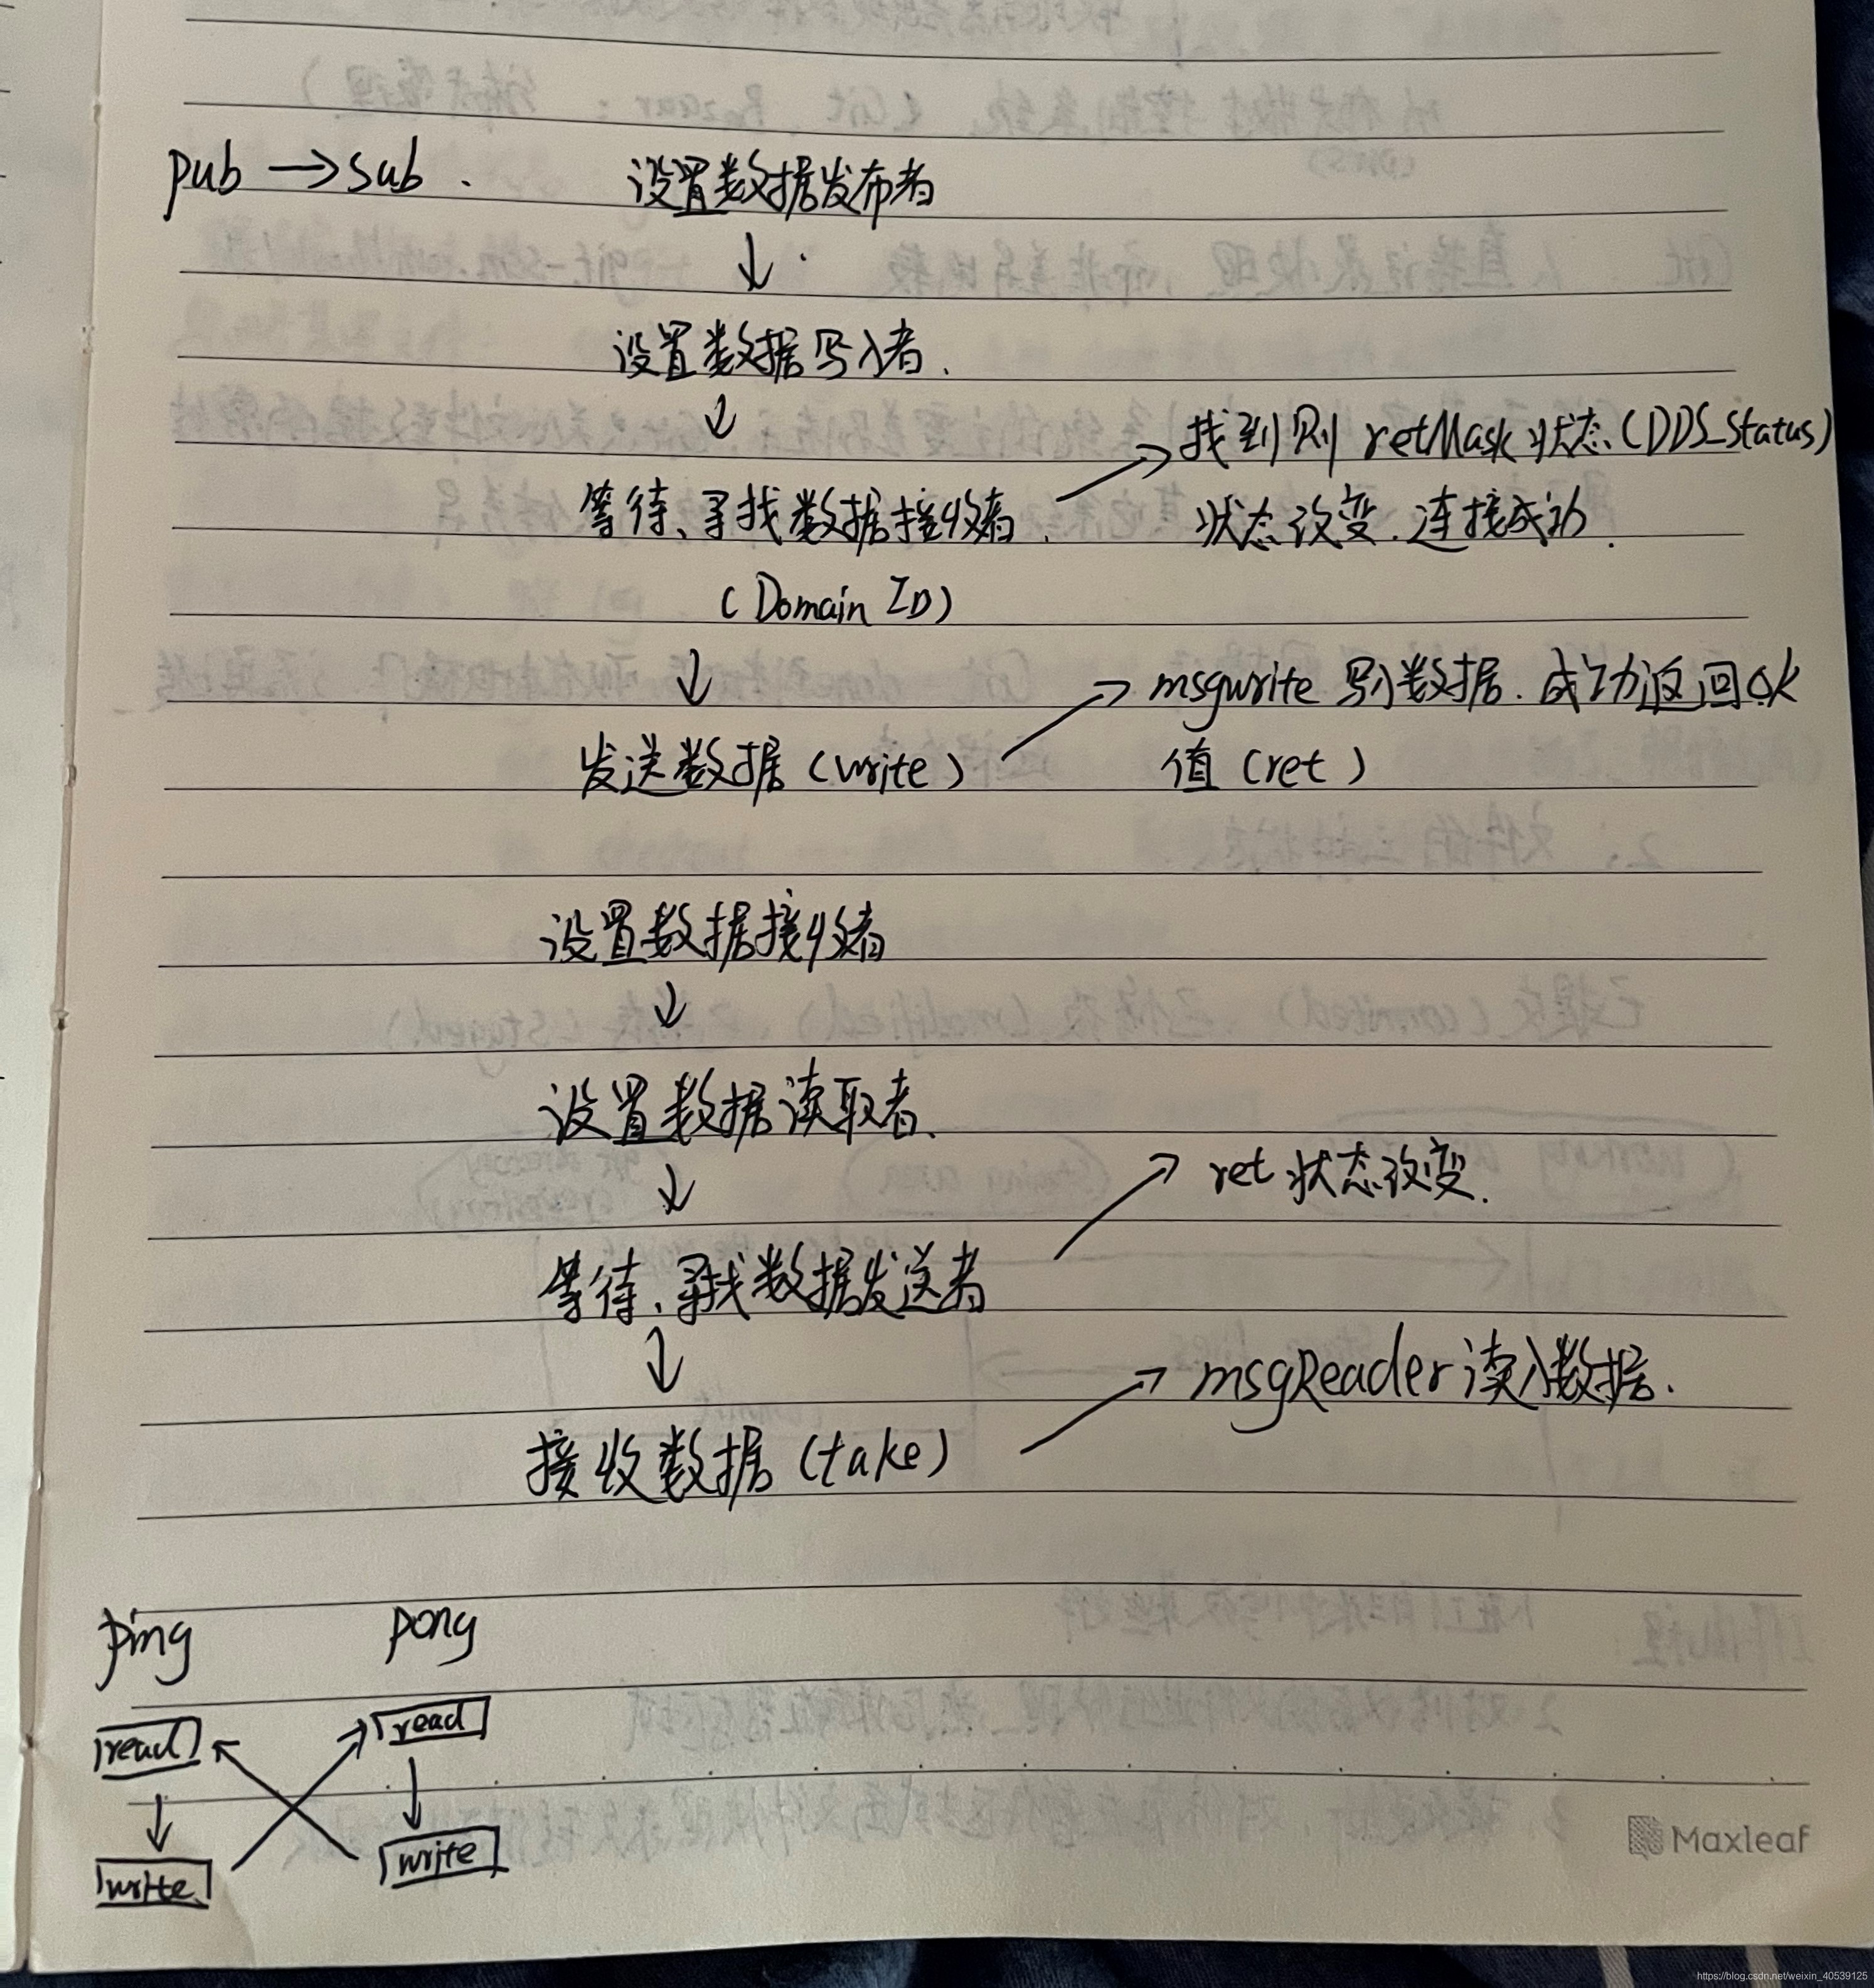 pub →sub .
设置数据发布者
↓
设置数据写入者.
↓
找到则 retMask 状态(DDS_Status)
等待、寻找数据接收者.
状态改变.连接成功.
(Domain ID)
↓
msgwrite 写入数据.成功返回ok
发送数据(write)
值(ret)
设置数据接收者
↓
设置数据读取者.
↓
ret 状态改变.
等待、寻找数据发送者
↓
msgReader读入数据.
接收数据(take)
ping pong
read read
write write
Maxleaf
https://blog.csdn.net/weixin_40539125